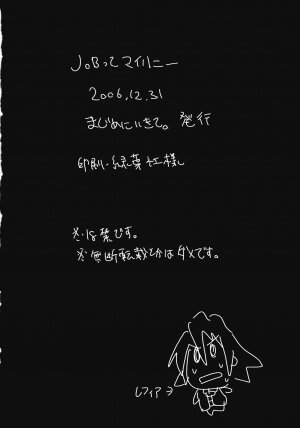 JOBってマイハニー
2006.12.31
まじめにいきて。発行
印刷・緑葉社様
※は禁びす。
※無断転載とかはダメです。
レフィア→